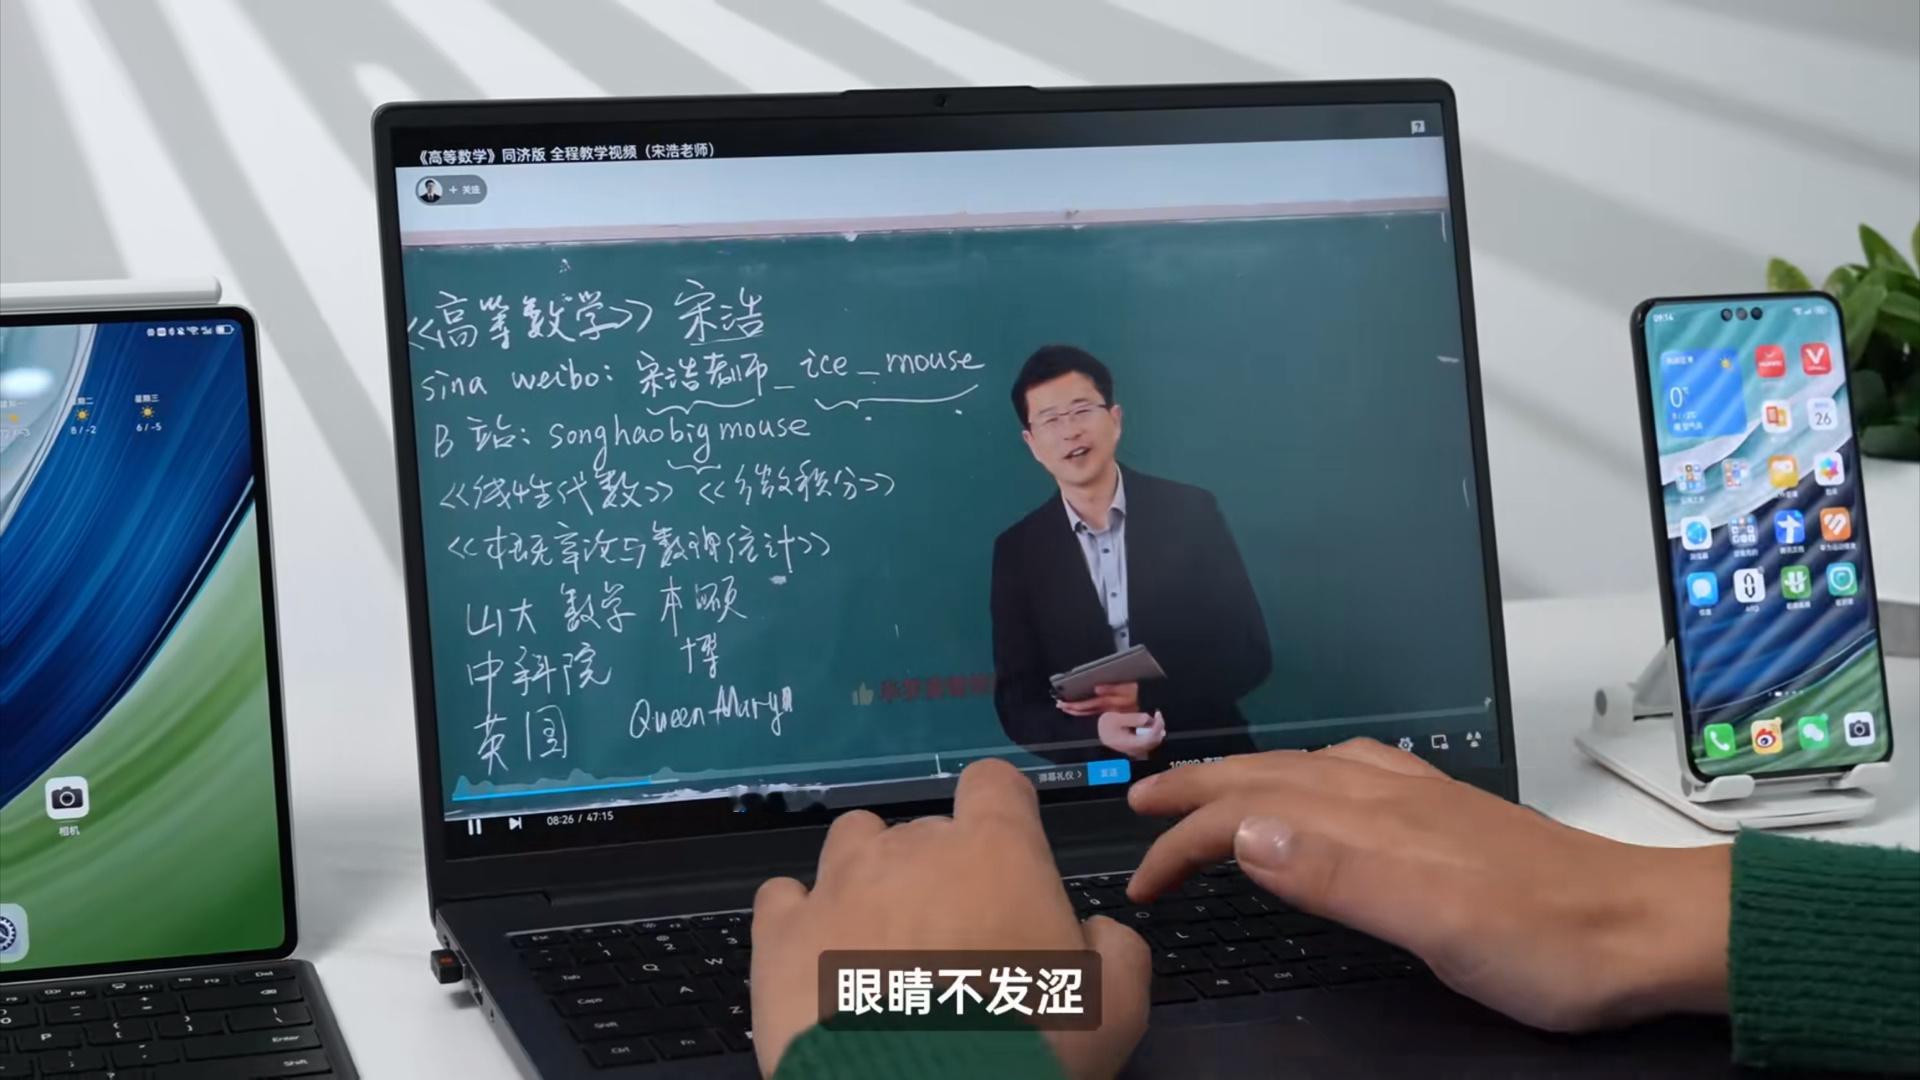 《高等数学》同济版 全程教学视频（宋浩老师）
+ 关注
《高等数学》 宋浩
sina weibo: 宋浩老师_ice_mouse
B 站: songhaobigmouse
《线性代数》《微积分》
《概率论与数理统计》
山大 数学 本硕
中科院 博
英国 Queen Mary
弹幕礼仪 >
发送
08:26 / 47:15
星期二
星期三
8 / -2
6 / -5
相机
09:14
0°
26
Tab
Q
W
Caps
A
Shift
Z
Ctrl
Fn
Enter
Shift
眼睛不发涩